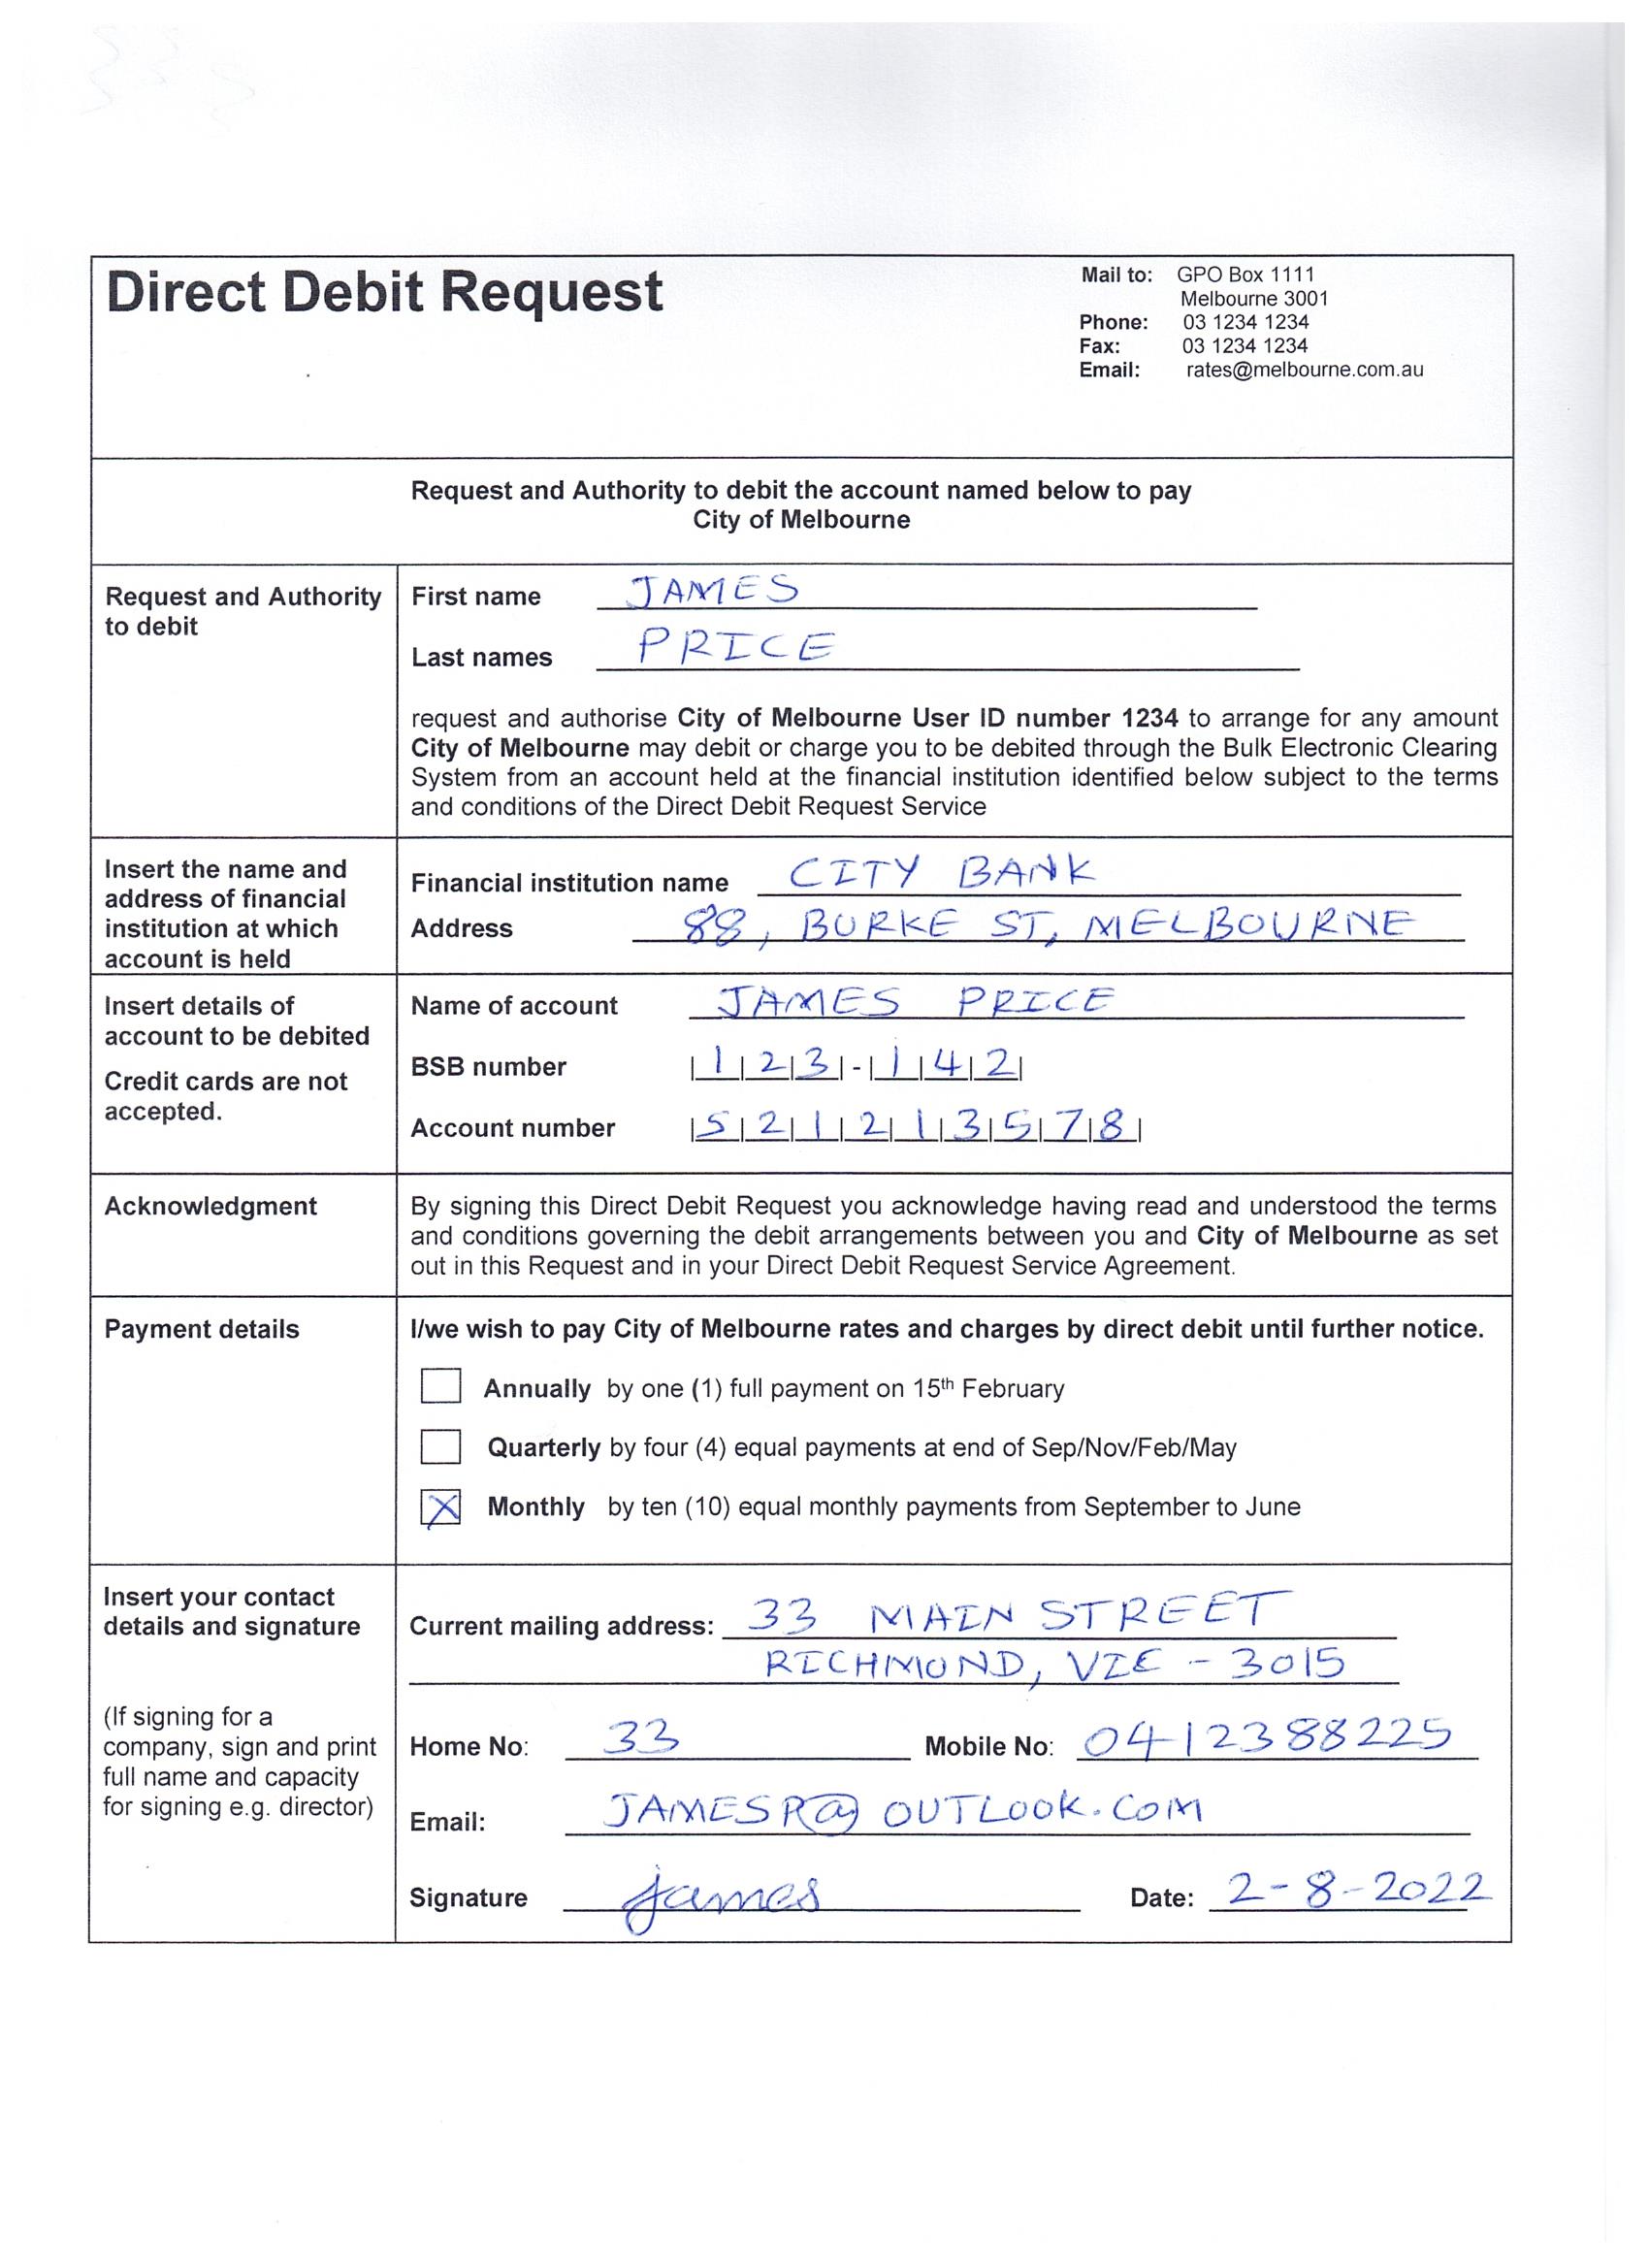 Direct Debit Request
Mail to: GPO Box 1111
Melbourne 3001
Phone: 03 1234 1234
Fax: 03 1234 1234
Email: rates@melbourne.com.au
Request and Authority to debit the account named below to pay
City of Melbourne
Request and Authority
to debit
First name JAMES
Last names PRICE
request and authorise City of Melbourne User ID number 1234 to arrange for any amount
City of Melbourne may debit or charge you to be debited through the Bulk Electronic Clearing
System from an account held at the financial institution identified below subject to the terms
and conditions of the Direct Debit Request Service
Insert the name and
address of financial
institution at which
account is held
Financial institution name CITY BANK
Address 88, BURKE ST, MELBOURNE
Insert details of
account to be debited
Credit cards are not
accepted.
Name of account JAMES PRICE
BSB number |1|2|3|-|1|4|2|
Account number |5|2|1|2|1|3|5|7|8|
Acknowledgment
By signing this Direct Debit Request you acknowledge having read and understood the terms
and conditions governing the debit arrangements between you and City of Melbourne as set
out in this Request and in your Direct Debit Request Service Agreement.
Payment details
I/we wish to pay City of Melbourne rates and charges by direct debit until further notice.
Annually by one (1) full payment on 15th February
Quarterly by four (4) equal payments at end of Sep/Nov/Feb/May
X Monthly by ten (10) equal monthly payments from September to June
Insert your contact
details and signature
(If signing for a
company, sign and print
full name and capacity
for signing e.g. director)
Current mailing address: 33 MAIN STREET
RICHMOND, VIC - 3015
Home No: 33 Mobile No: 0412388225
Email: JAMESP@OUTLOOK.COM
Signature James Date: 2-8-2022